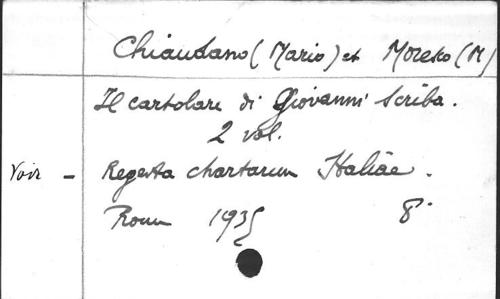 Chiaudano (Mario) et Moresco (M)
Il cartolare di Giovanni Scriba.
2 vol.
Voir - Regesta chartarum Italiae.
Roma 1935 8°